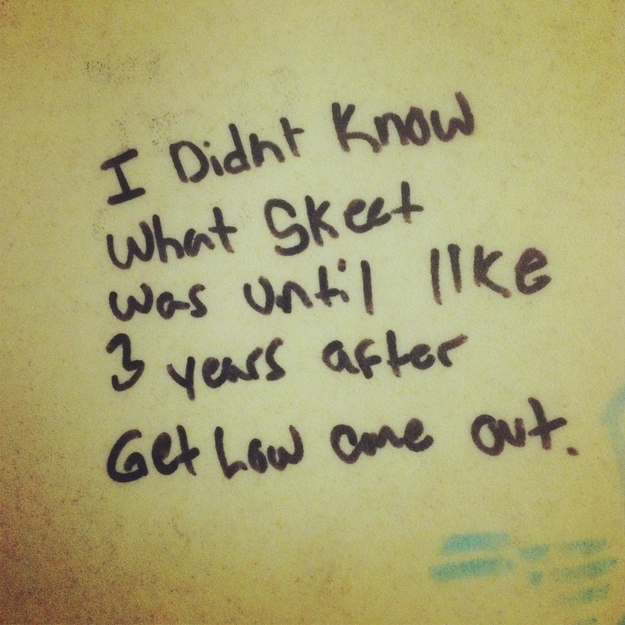 I Didnt Know
What Skeet
was until like
3 years after
Get Low come out.